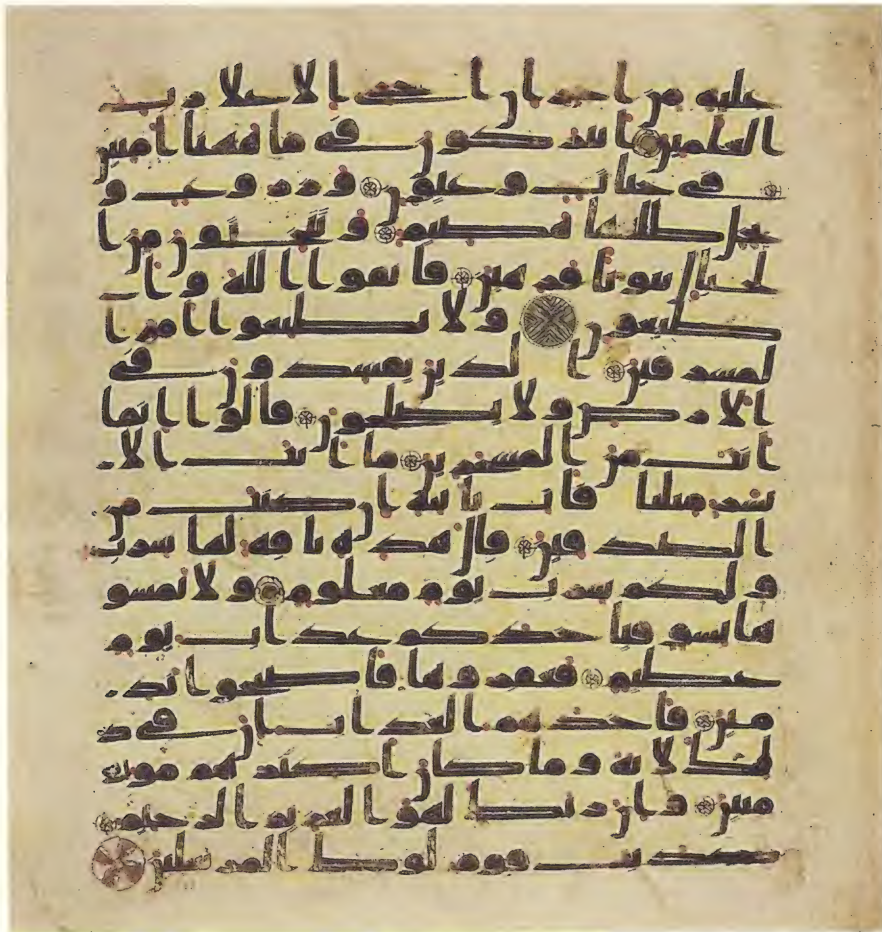 عليه من اجر ان اجرى الا علا رب
العلمين اتتركون فى ما ههنا امنين
فى جنات وعيون وزروع و
نخل طلعها هضيم وتنحتون من ا
لجبال بيوتا فرهين فاتقوا الله وا
طيعون ولا تطيعوا امر ا
لمسرفين الذين يفسدون فى
الارض ولا يصلحون قالوا انما
انت من المسحرين ما انت الا
بشر مثلنا فات باية ان كنت من
الصدقين قال هذه ناقة لها شرب
ولكم شرب يوم معلوم ولا تمسو
ها بسو فياخذكم عذاب يوم
عظيم فعقروها فاصبحوا ند
مين فاخذهم العذاب ان فى ذ
لك لاية وما كان اكثرهم مو
منين وان ربك لهو العزيز الرحيم
كذبت قوم لوط المرسلين